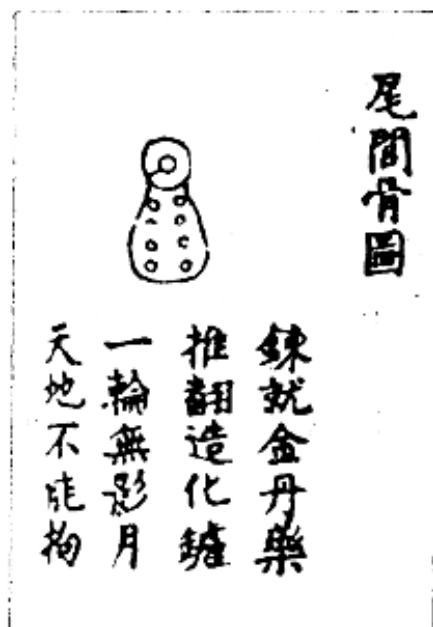 尾閭骨圖
鍊就金丹藥
推翻造化鑪
一輪無影月
天地不能拘